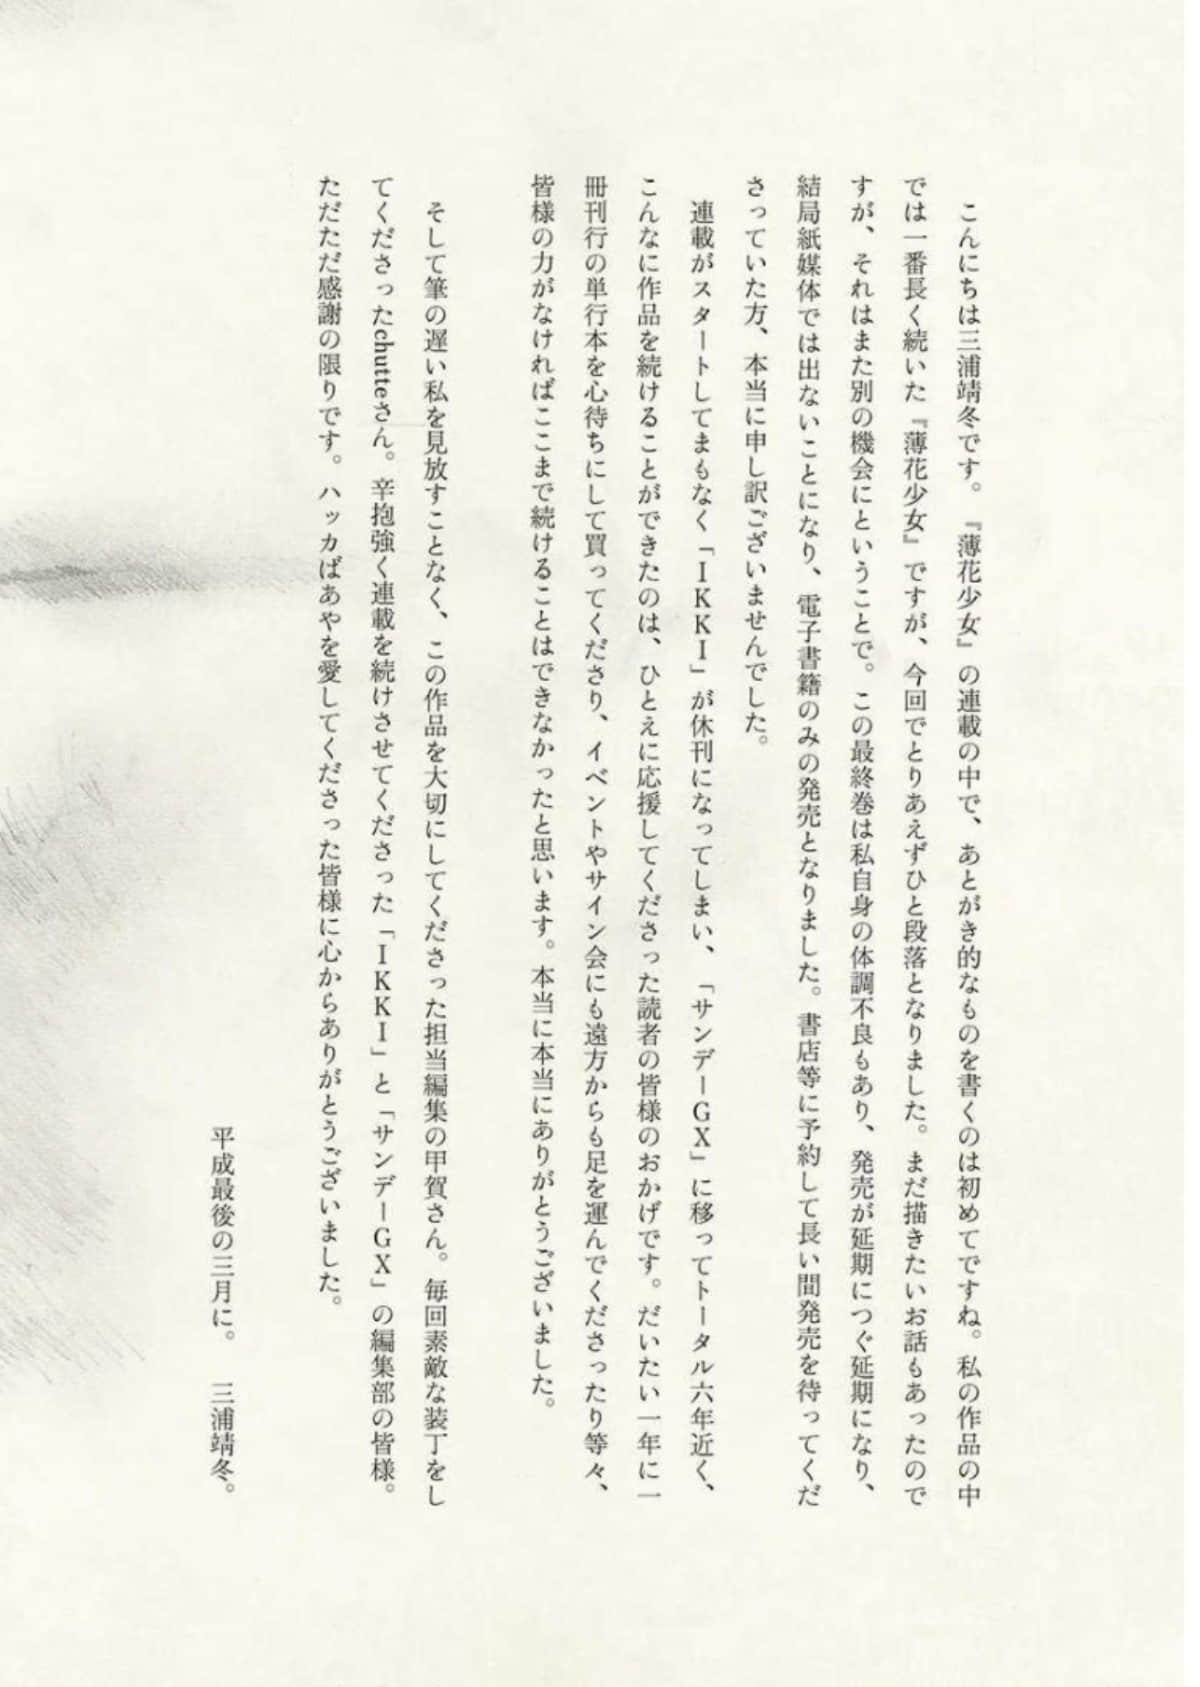 こんにちは三浦靖冬です。『薄花少女』の連載の中で、あとがき的なものを書くのは初めてですね。私の作品の中
では一番長く続いた『薄花少女』ですが、今回でとりあえずひと段落となりました。まだ描きたいお話もあったので
すが、それはまた別の機会にということで。この最終巻は私自身の体調不良もあり、発売が延期につぐ延期になり、
結局紙媒体では出ないことになり、電子書籍のみの発売となりました。書店等に予約して長い間発売を待ってくだ
さっていた方、本当に申し訳ございませんでした。
連載がスタートしてまもなく「IKKI」が休刊になってしまい、「サンデーGX」に移ってトータル六年近く、
こんなに作品を続けることができたのは、ひとえに応援してくださった読者の皆様のおかげです。だいたい一年に一
冊刊行の単行本を心待ちにして買ってくださり、イベントやサイン会にも遠方からも足を運んでくださったり等々、
皆様の力がなければここまで続けることはできなかったと思います。本当に本当にありがとうございました。
そして筆の遅い私を見放すことなく、この作品を大切にしてくださった担当編集の甲賀さん。毎回素敵な装丁をし
てくださったchutteさん。辛抱強く連載を続けさせてくださった「IKKI」と「サンデーGX」の編集部の皆様。
ただただ感謝の限りです。ハッカばあやを愛してくださった皆様に心からありがとうございました。
平成最後の三月に。　三浦靖冬。